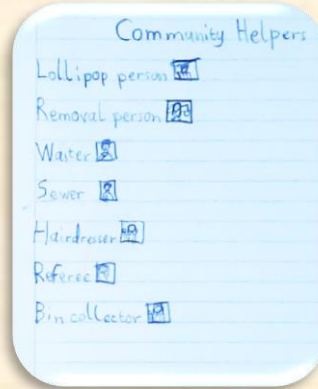 Community Helpers
Lollipop person
Removal person
Waiter
Sewer
Hairdresser
Referee
Bin collector